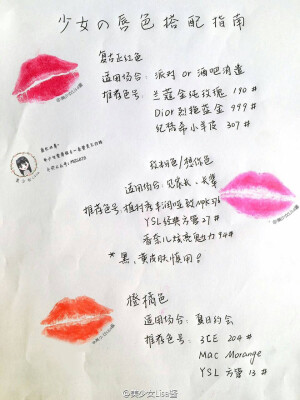 少女の唇色搭配指南
复古正红色
适用场合：派对 or 酒吧消遣
推荐色号：兰蔻金纯玫瑰 190#
Dior烈艳蓝金 999#
纪梵希小羊皮 307#
适用场合：见家长、长辈
推荐色号：植村秀
YSL经典方管 27#
香奈儿炫亮魅力 94#
*黑、黄皮肤慎用！
橙橘色
适用场合：夏日约会
推荐色号：3CE 204#
Mac Morange
YSL 方管 13#
@美少女Lisa酱